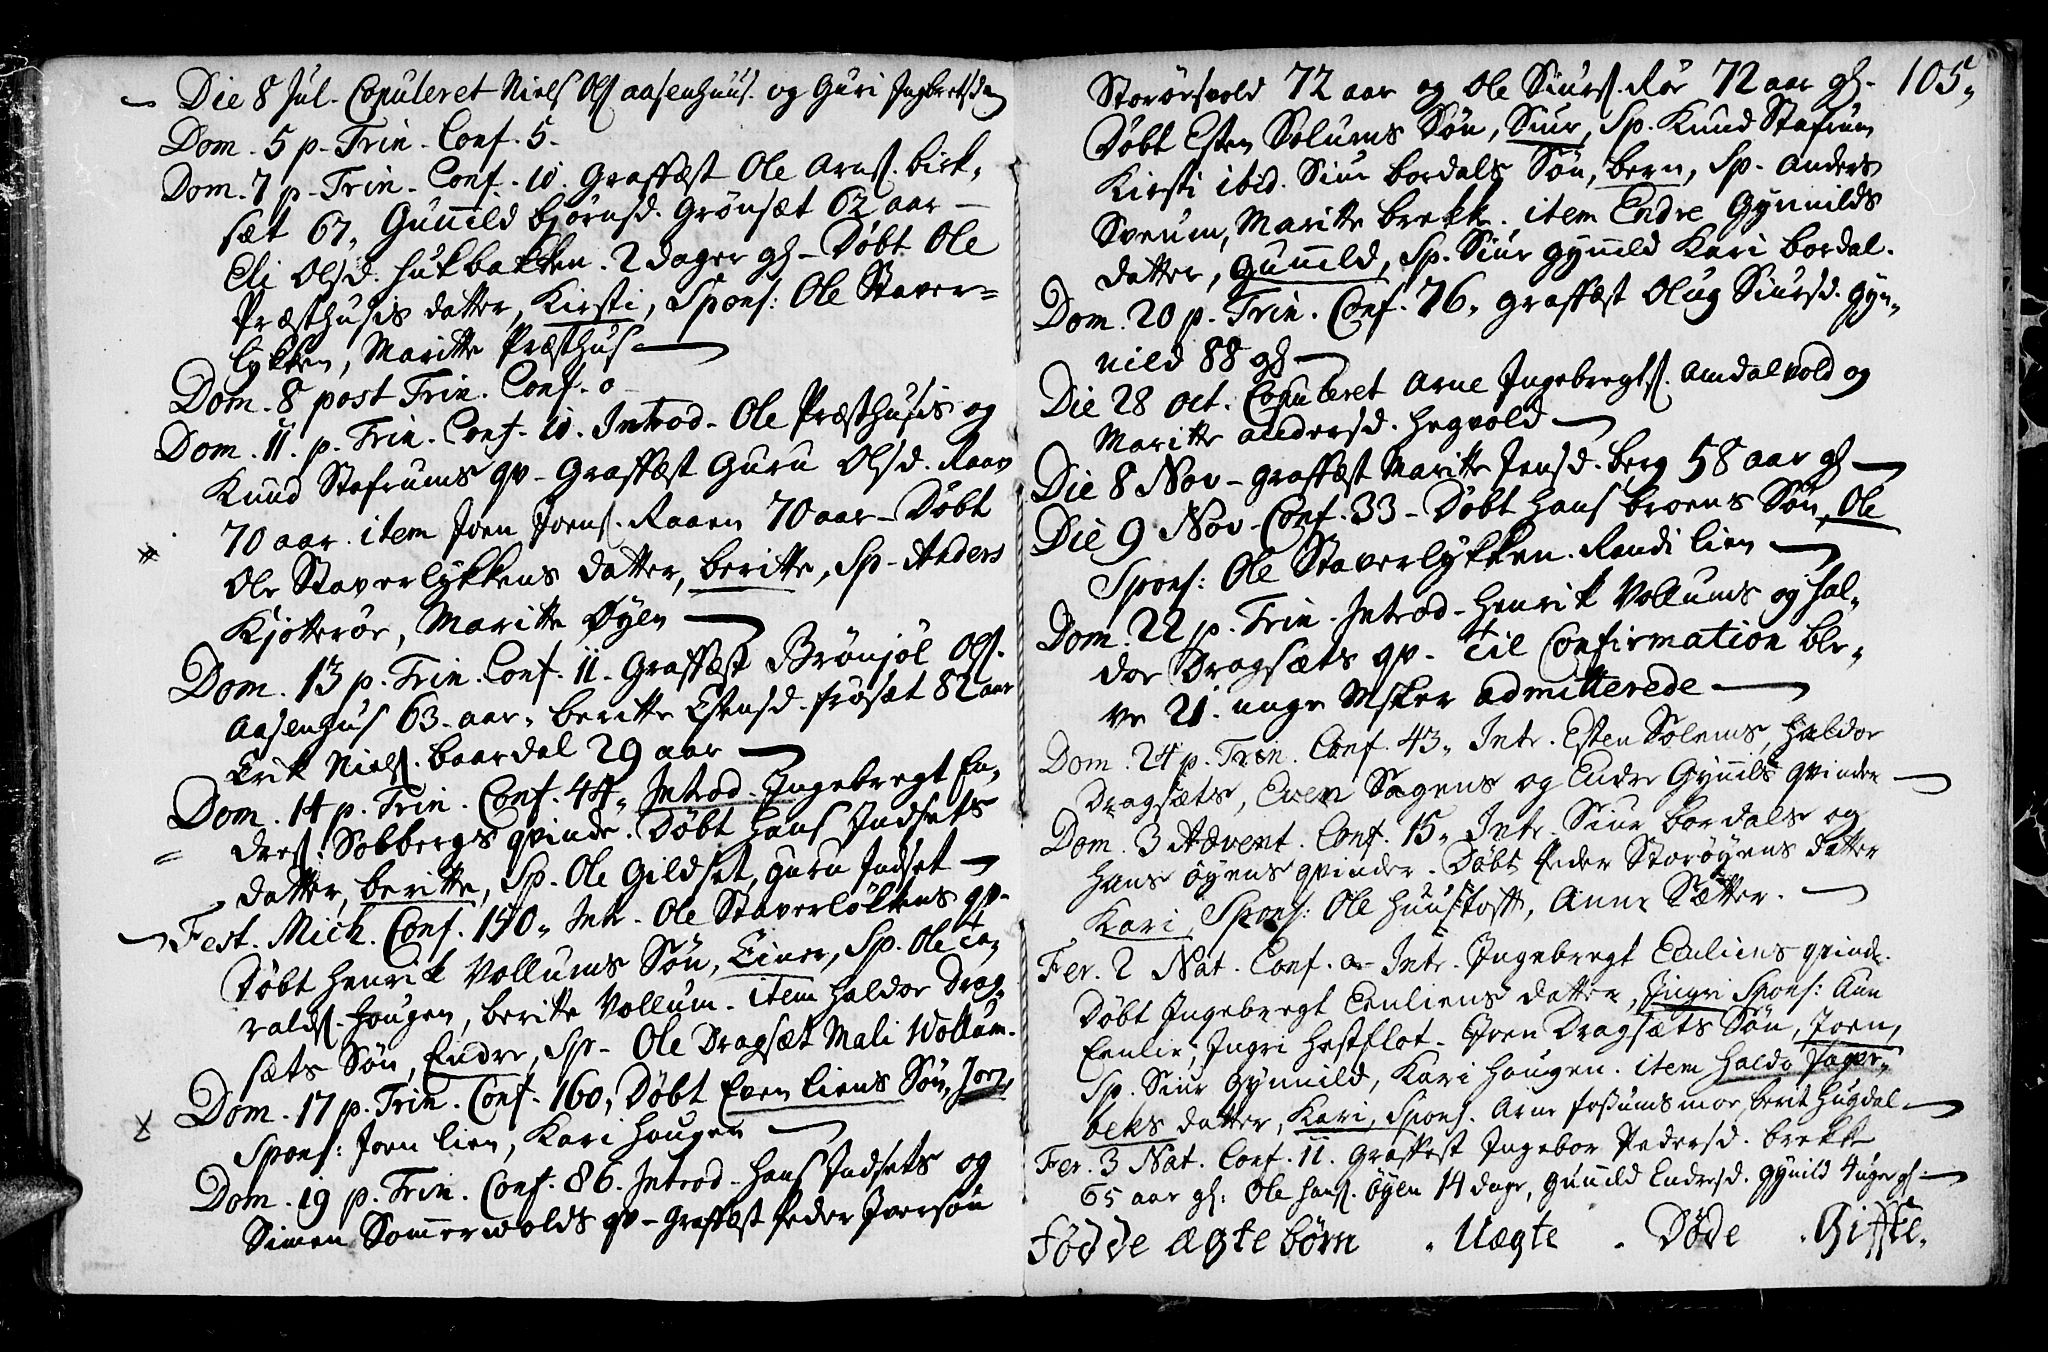 Die 8 Jul. Copuleret Niels Ols. aasenhuus. og Guri Ingebretsd.
Dom. 5 p. Trin. Conf. 5.
Dom. 7 p. Trin. Conf. 10. Graffæst Ole Arns. birk„
sæt 67, Guñild biörnsd. Grönsæt 62 aar —
Eli Olsd. Hukbakken. 2 dager gl. Döbt Ole
Præsthusis datter, Kirsti, Spons: Ole Staver=
lykken, Maritte Præsthus —
Dom. 8 post Trin. Conf. 0
Dom. 11. p. Trin. Conf. 10. Introd. Ole Præsthusis og
Knud Stafrums qv. Graffæst Guru Olsd. Raaen
70 aar. item Joen Joens. Raaen 70 aar. Döbt
Ole Staverlykkens datter, beritte, Sp. Anders
Kjotterör, Maritte Öyen —
Dom. 13 p. Trin. Conf. 11. Graffæst Brönjöl Ols.
Aasenhus 63. aar. beritte Estensd. frösæt 82 aar
Erik Niels. baardal 29 aar —
Dom. 14 p. Trin. Conf. 44, Introd. Ingebregt En„
dres. Solbergs qvinde. Döbt Hans Indsets
datter, beritte, Sp. Ole Gildset, guru Indset —
Fest. Mich. Conf. 150, Intr. Ole Staverlökkens qv.
Döbt Henrik Vollums Sön, Einer, Sp. Ole Ta„
ralds. Haugen, beritte Vollum. item Haldor Drag„
sæts Sön, Endre, Sp. Ole Dragsæt Mali Wollum.
Dom. 17 p. Trin. Conf. 160, Döbt Even liens Sön, Joen,
Spons: Joen lien, Kari Haugen —
Dom. 19 p. Trin. Conf. 86. Introd. Hans Indsets og
Simen Somerwolds qv. Graffæst Peder Iversön
105„
Storörsvold 72 aar og Ole Siurs. Rör 72 aar gl.
Döbt Esten Solums Sön, Siur, Sp. Knud Stafrum
Kirsti ibid. Siur bordals Sön, bern, Sp. Anders
Sveum, Maritte brekk. item Endre Gynnilds
datter, Guñild, Sp. Siur gyñild Kari bordal.
Dom. 20 p. Trin. Conf. 76, Graffæst Olug Siursd. gyn„
nild 88 gl —
Die 28 oct. Copuleret Arne Ingebregts. Amdalvold og
Maritte andersd. Hegvold —
Die 8 Nov. Graffæst Maritte Jensd. berg 58 aar gl —
Die 9 Nov. Conf. 33. Döbt Hans broens Sön, Ole
Spons: Ole Staverlykken. Randi lien —
Dom. 22 p. Trin. Introd. Henrik Vollums og Hal„
dor Dragsæts qv. Til Confirmation ble„
ve 21. unge Msker admitterede —
Dom. 24 p. Trin. Conf. 43, Intr. Esten Solems, Haldor
Dragsæts, Even Sagens og Endre Gyñils qvinder —
Dom. 3 Advent. Conf. 15, Intr. Siur bordals og
Hans öyens qvinder. Döbt Peder Storöyens datter
Kari, Spons: Ole Huustoft, Anne Sætter. —
Fer. 2 Nat. Conf. 0. Intr. Ingebregt Eenliens qvinde.
Döbt Ingebregt Eenliens datter, Ingri Spons: Ann
Eenlie, Ingri Hestflot. Joen Dragsæts Sön, Joen,
Sp. Siur Gynnild, Kari Haugen. item Haldo Fager„
beks datter, Kari, Spons. Arne fossums mor, berit Hugdal —
Fer. 3 Nat. Conf. 11. Graffest Ingebor Pedersd. brekk
65 aar gl: Ole Hans. Öyen 14 dage, Guñild Endresd. gynild 4 uger gl. —
Födde ægte börn . Uægte . Döde . Gifte.